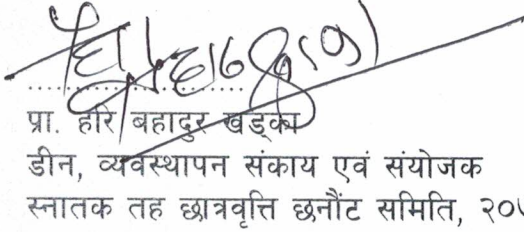 प्रा. हरि बहादुर खड्का
डीन, व्यवस्थापन संकाय एवं संयोजक
स्नातक तह छात्रवृत्ति छनौंट समिति,